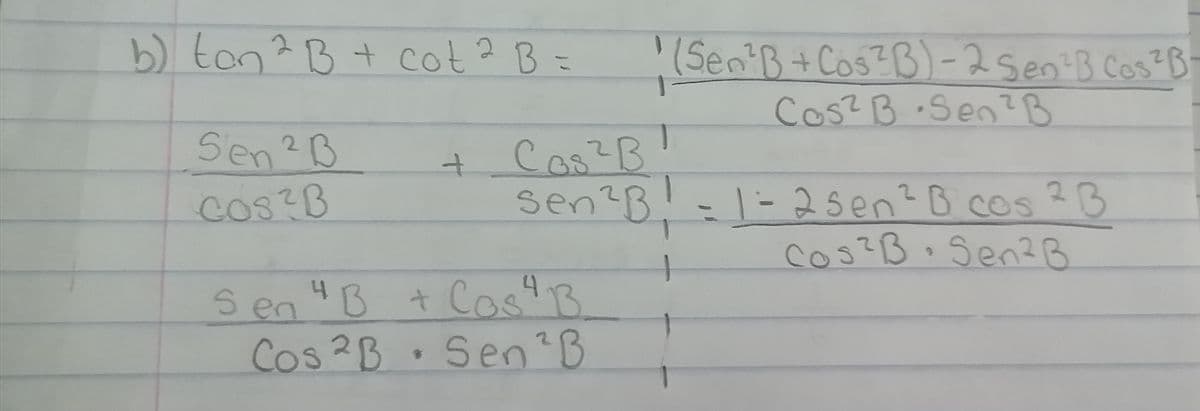 b) tan² B + cot² B =
Sen² B / cos² B + Cos² B / sen² B
Sen⁴ B + Cos⁴ B / Cos² B · Sen² B
(Sen² B + Cos² B) - 2 Sen² B Cos² B / Cos² B · Sen² B
= 1 - 2 sen² B cos² B / cos² B · Sen² B